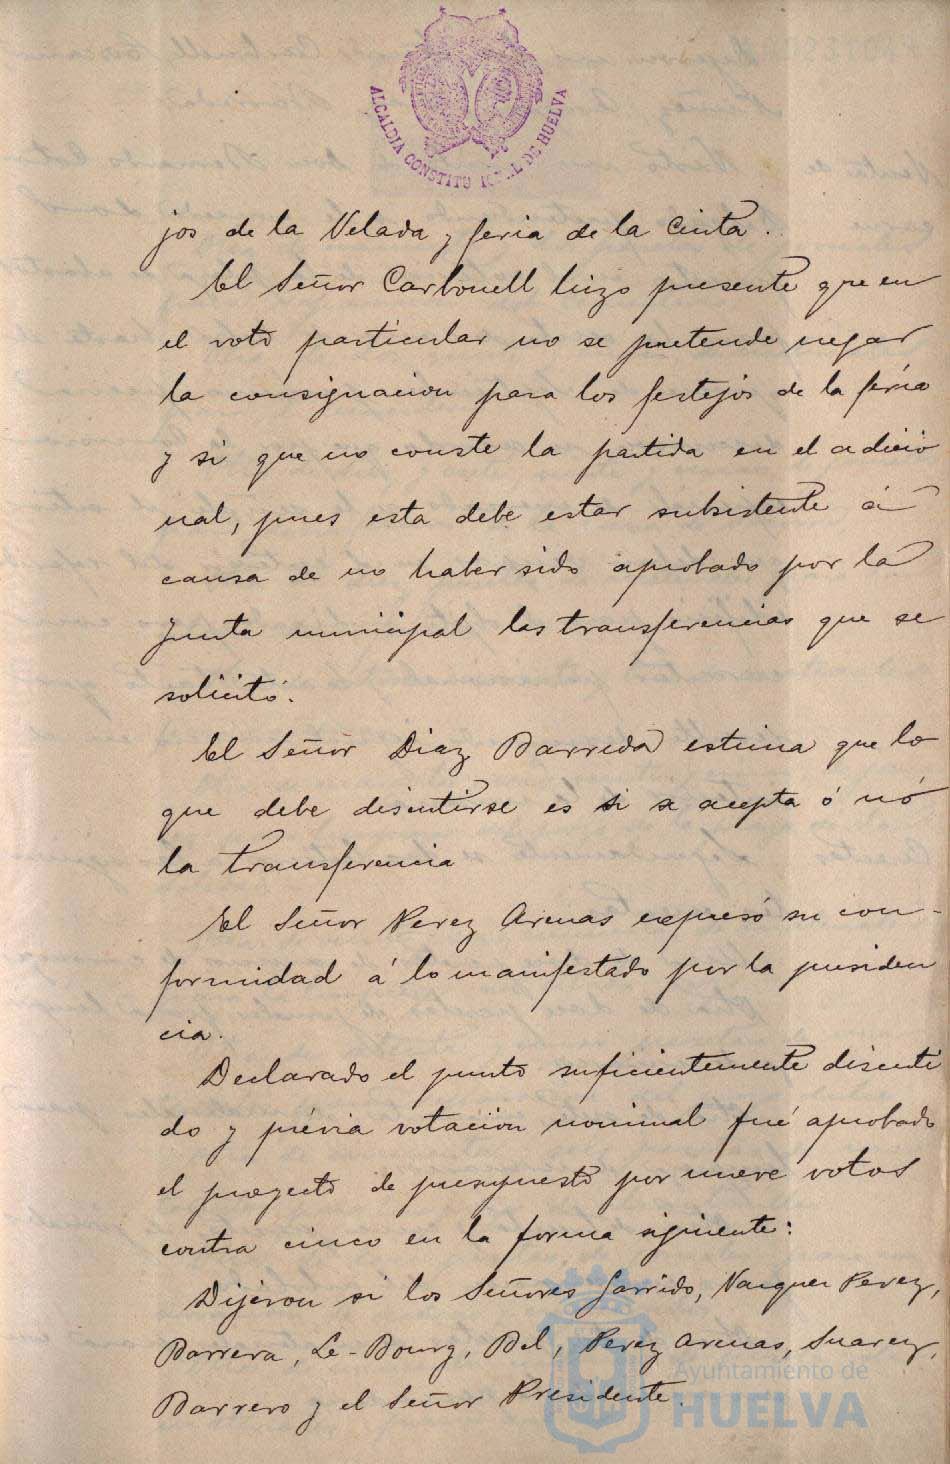 ALCALDIA CONSTITUCIONAL DE HUELVA
jos de la Velada y feria de la Cinta.
El Señor Carbonell hizo presente que en
el voto particular no se pretende negar
la consignacion para los festejos de la féria
y si que no conste la partida en el adicio
nal, pues esta debe estar subsistente á
causa de no haber sido aprobado por la
Junta municipal las transferencias que se
solicitó.
El Señor Diaz Barreda estima que lo
que debe discutirse es si se acepta ó nó
la transferencia
El Señor Perez Arenas expresó su con-
formidad á lo manifestado por la presiden
cia.
Declarado el punto suficientemente discuti
do y prévia votacion nominal fué aprobado
el proyecto de presupuesto por nueve votos
contra cinco en la forma siguiente:
Dijeron si los Señores Garrido, Vazquez Perez,
Barrera, Le-Bourg, Bel, Perez Arenas, Suarez,
Barrero y el Señor Presidente.
Ayuntamiento de
HUELVA